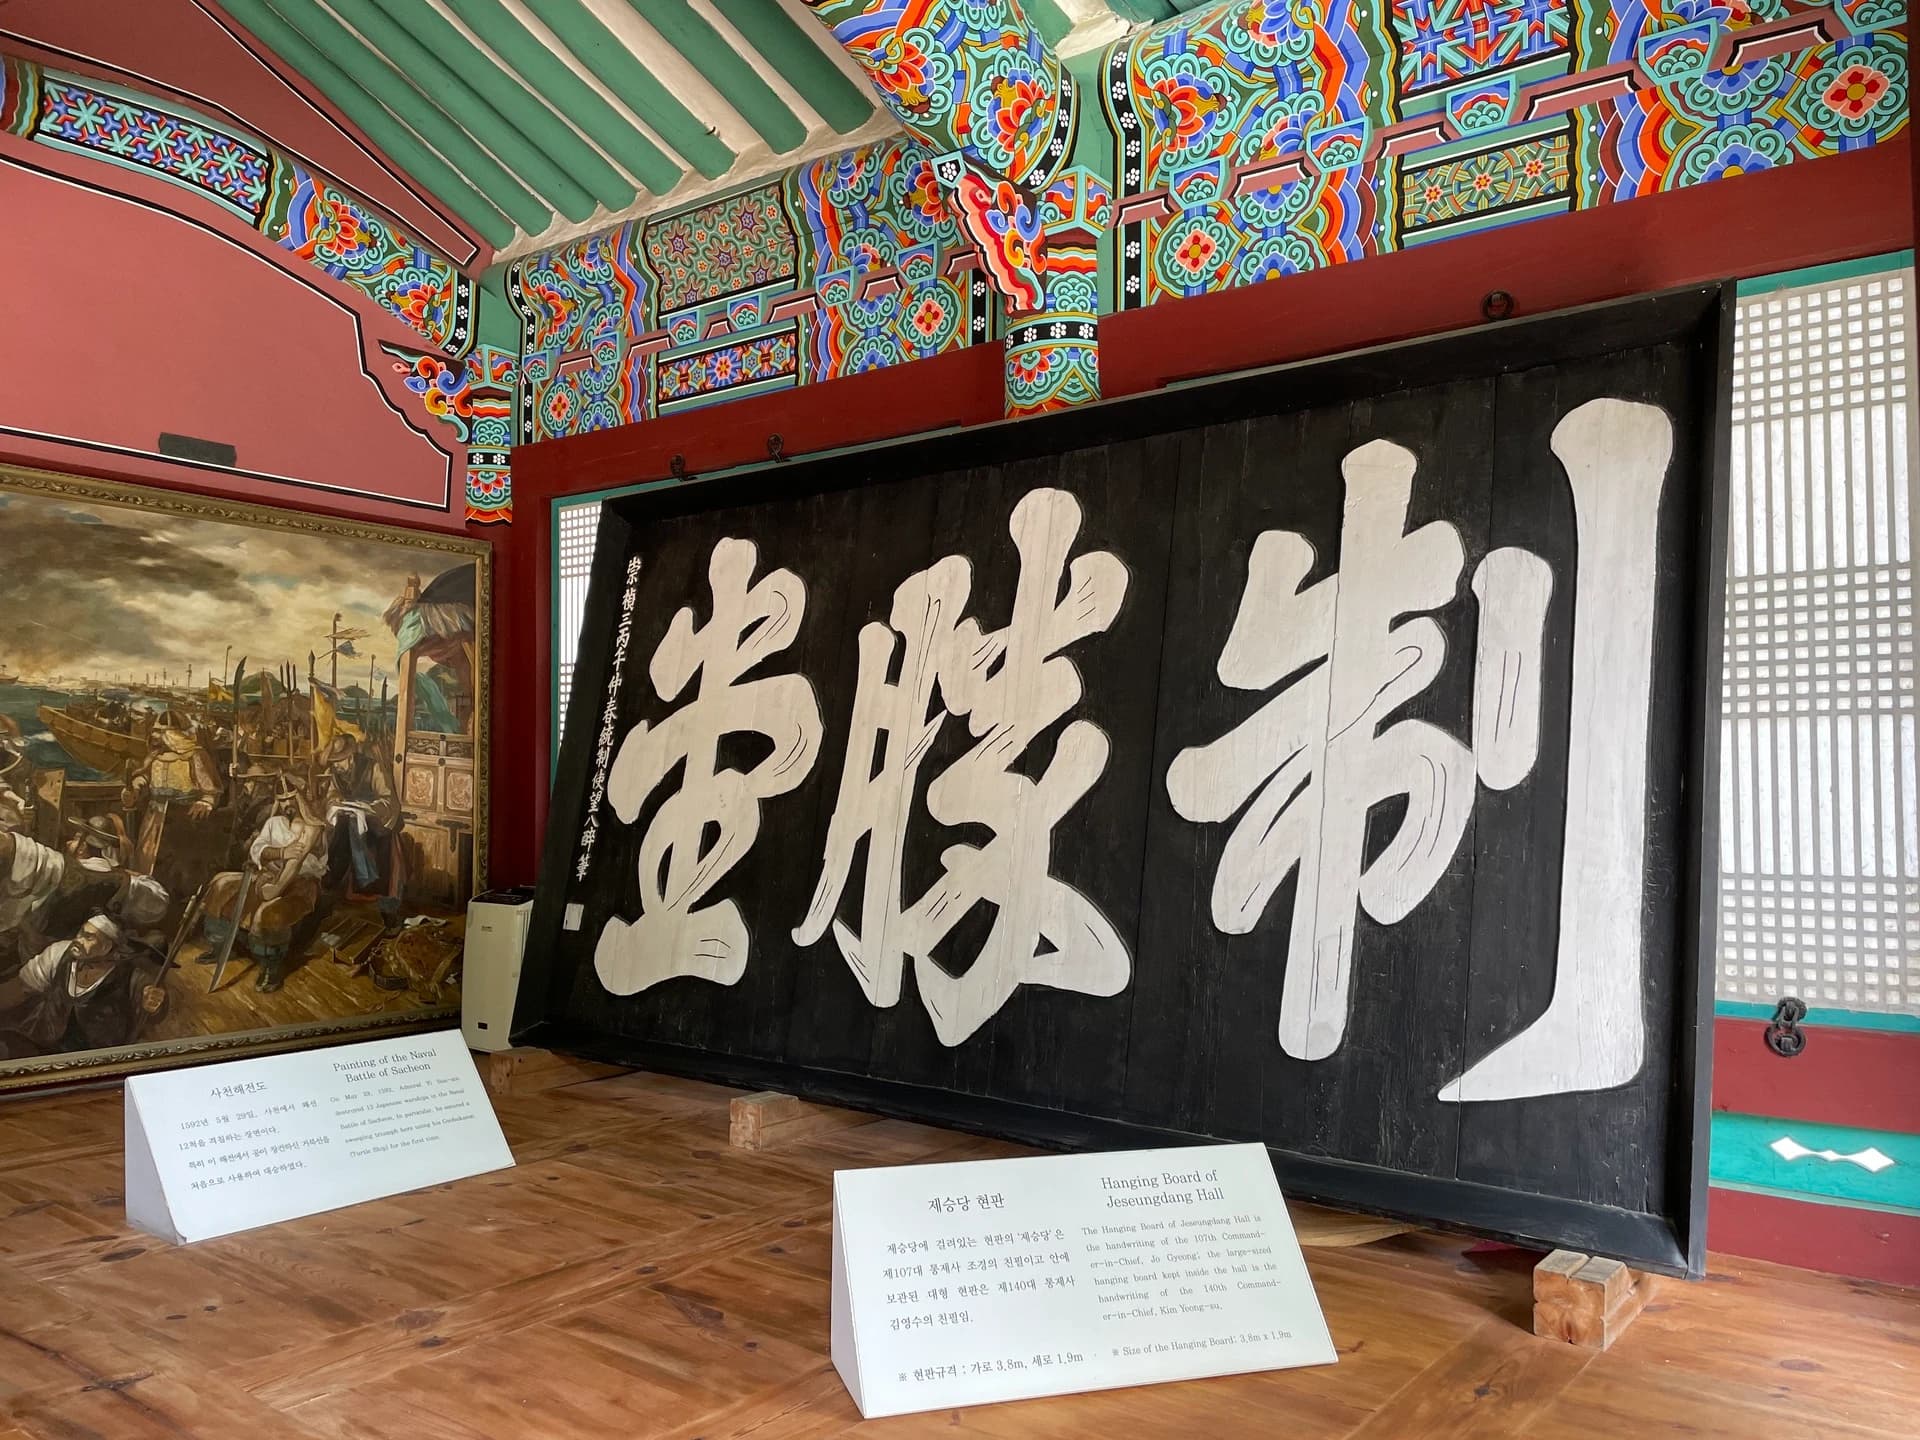 制勝堂
崇禎三丙午仲春統制使望八醉筆
사천해전도
1592년 5월 29일, 사천에서 왜선
12척을 격침하는 장면이다.
특히 이 해전에서 공이 창건하신 거북선을
처음으로 사용하여 대승하였다.
Painting of the Naval
Battle of Sacheon
On May 29, 1592, Admiral Yi Sun-sin
destroyed 12 Japanese warships in the Naval
Battle of Sacheon. In particular, he secured a
sweeping triumph here using his Geobukseon
(Turtle Ship) for the first time.
제승당 현판
제승당에 걸려있는 현판의 '제승당'은
제107대 통제사 조경의 친필이고 안에
보관된 대형 현판은 제140대 통제사
김영수의 친필임.
※ 현판규격 : 가로 3.8m, 세로 1.9m
Hanging Board of
Jeseungdang Hall
The Hanging Board of Jeseungdang Hall is
the handwriting of the 107th Command-
er-in-Chief, Jo Gyeong; the large-sized
hanging board kept inside the hall is the
handwriting of the 140th Command-
er-in-Chief, Kim Yeong-su.
※ Size of the Hanging Board: 3.8m x 1.9m